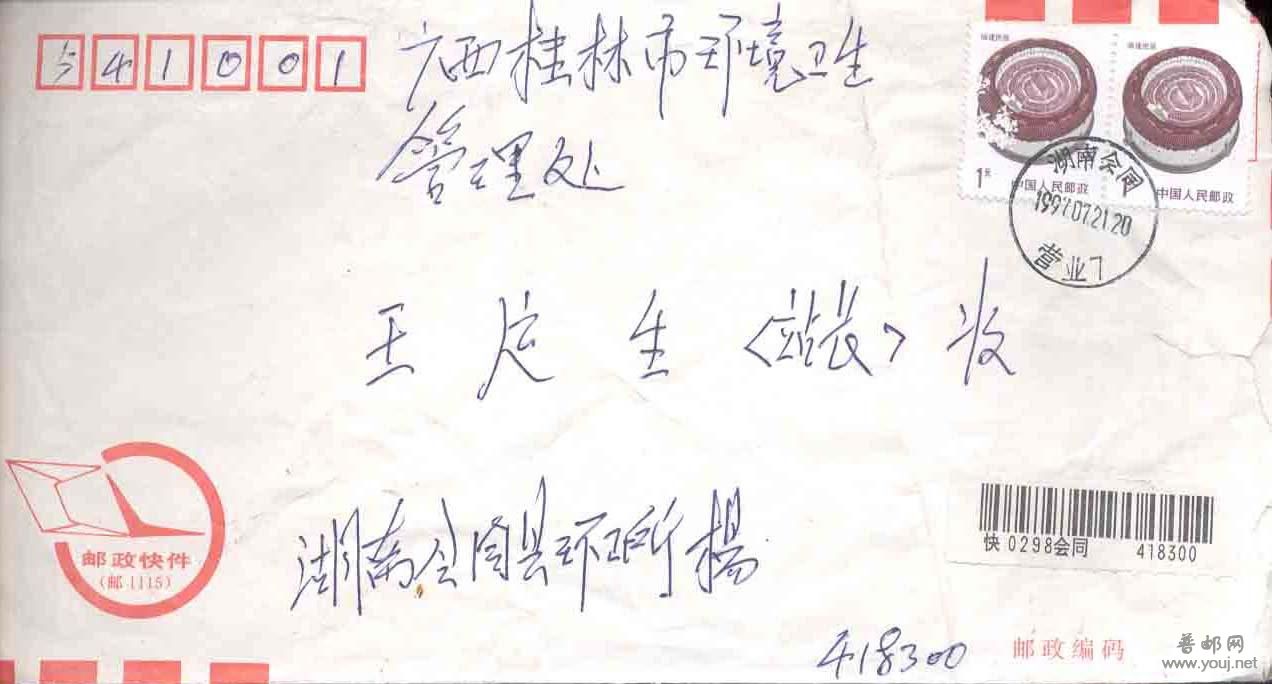 541001
广西桂林市环境卫生
管理处
福建民居
福建民居
1元
中国人民邮政
中国人民邮政
湖南会同
1997.07.21.20
营业
王定生〈站长〉收
邮政快件
(邮1115)
快 0298会同 418300
湖南会同县环卫所楊
418300
邮政编码
普邮网
www.youj.net